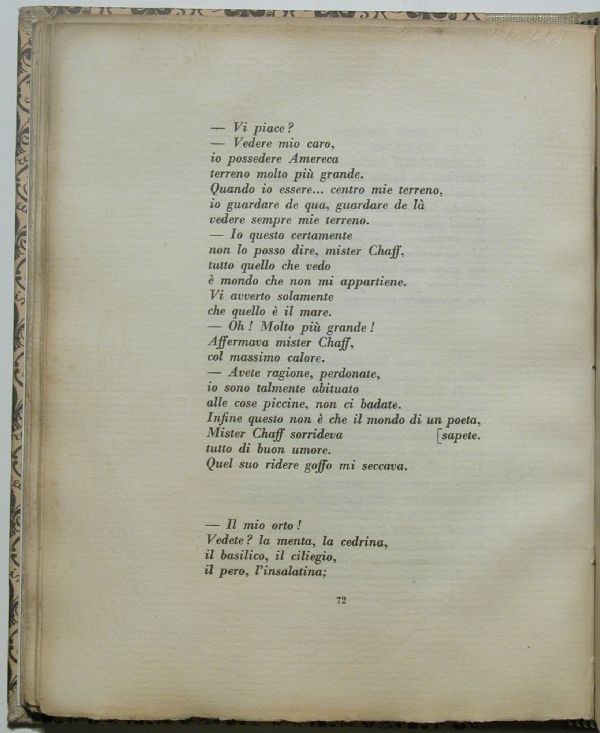 — Vi piace?
— Vedere mio caro,
io possedere Amereca
terreno molto più grande.
Quando io essere... centro mie terreno,
io guardare de qua, guardare de là
vedere sempre mie terreno.
— Io questo certamente
non lo posso dire, mister Chaff,
tutto quello che vedo
è mondo che non mi appartiene.
Vi avverto solamente
che quello è il mare.
— Oh! Molto più grande!
Affermava mister Chaff,
col massimo calore.
— Avete ragione, perdonate,
io sono talmente abituato
alle cose piccine, non ci badate.
Infine questo non è che il mondo di un poeta,
Mister Chaff sorrideva [sapete.
tutto di buon umore.
Quel suo ridere goffo mi seccava.
— Il mio orto!
Vedete? la menta, la cedrina,
il basilico, il ciliegio,
il pero, l'insalatina;
72